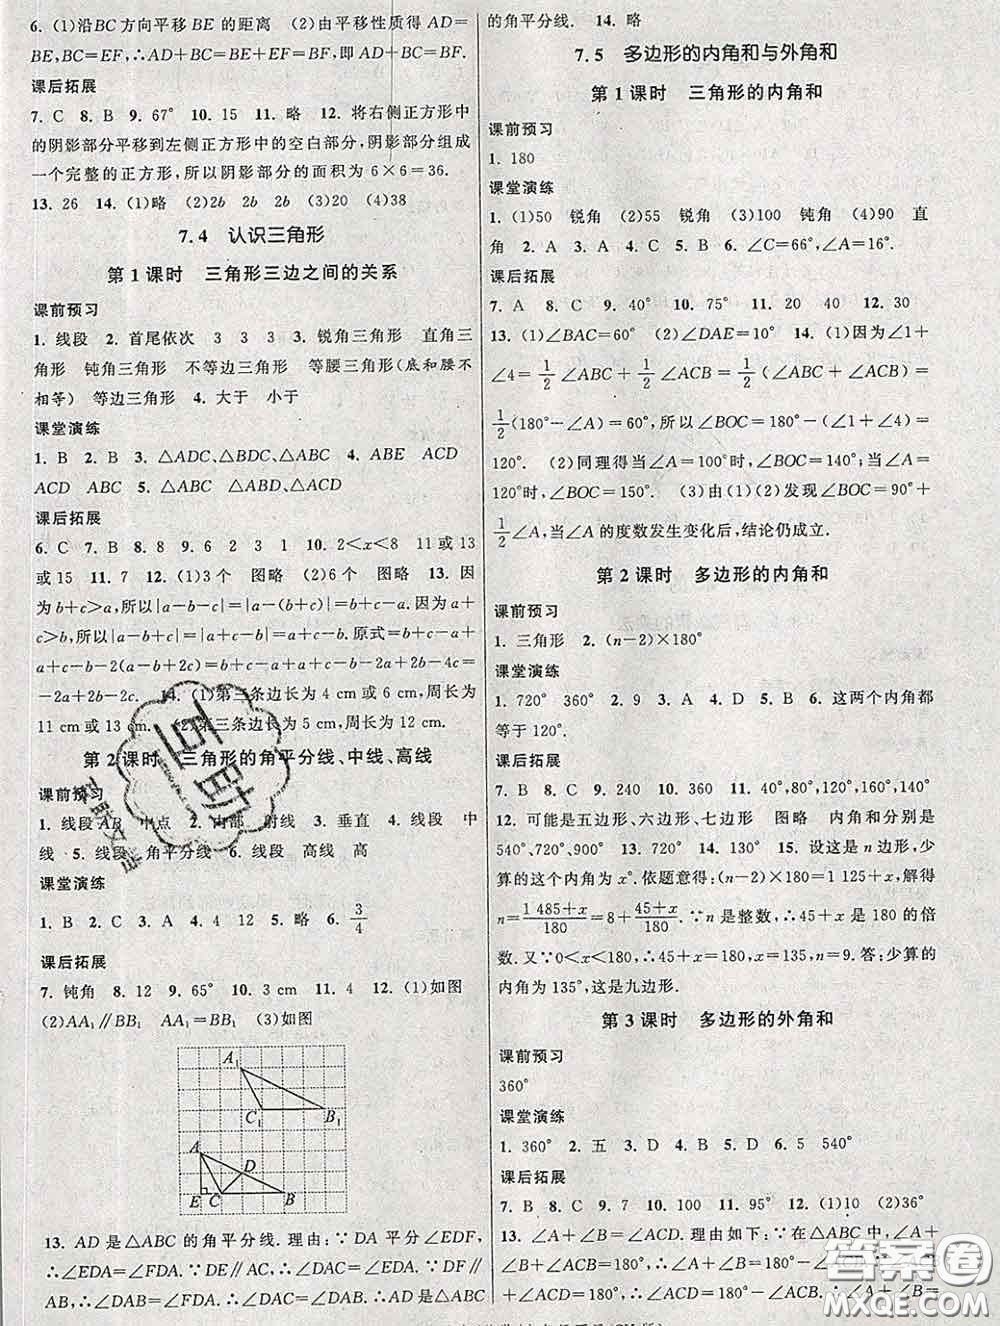 6. (1)沿BC方向平移BE的距离 (2)由平移性质得AD=
BE,BC=EF,∴AD+BC=BE+EF,即AD+BC=BF.
课后拓展
7. C 8. B 9. 67° 10. 3 11. 略 12. 将右侧正方形中
的阴影部分平移到左侧正方形中的空白部分,阴影部分组成
一个完整的正方形,所以阴影部分的面积为6×6=36.
13. 26 14. (1)略 (2)2b 2b 2b (3)20 (4)38
7.4 认识三角形
第1课时 三角形三边之间的关系
课前预习
1. 线段 2. 首尾依次 3 3 3 3. 锐角三角形 直角三
角形 钝角三角形 不等边三角形 等腰三角形(底和腰不
相等) 等边三角形 4. 大于 小于
课堂演练
1. B 2. B 3. △ADC、△BDC、△ABC 4. ABE ACD
ACD ABC 5. △ABC △ABD、△ACD
课后拓展
6. C 7. B 8. 8 9. 6 2 3 1 10. 2<x<8 11或13
或15 11. 7 12. (1)3个 图略 (2)6个 图略 13. 因
为b+c>a,所以|a-b-c|=|a-(b+c)|=b+c-a.因为a+
c>b,所以|a-b+c|=|a+c-b|=a+c-b.原式=b+c-
a+c-b-2(a+c-b)=b+c-a+c-b-2a+2b-2c-4c=
-2a+2b-2c. 14. (1)第三条边长为4 cm或6 cm,周长为
11 cm或13 cm. (2)第三条边长为5 cm,周长为12 cm.
第2课时 三角形的角平分线、中线、高线
课前预习
1. 线段AB 中点 2. 内部 射线 3. 垂直 4. 线段 中
线 5. 线段 角平分线 6. 线段 高线 高
课堂演练
1. B 2. C 3. A 4. 4 12 5. 略 6. 3/4
课后拓展
7. 钝角 8. 12 9. 65° 10. 3 cm 11. 4 12. (1)如图
(2)AA₁∥BB₁ AA₁=BB₁ (3)如图
A₁
C₁
B₁
A
D
E
C
B
13. AD是△ABC的角平分线.理由:∵DA平分∠EDF,
∴∠EDA=∠FDA.∵DE∥AC,∴∠EDA=∠FAD.∵DF∥
AB,∴∠DAB=∠FDA.∴∠DAB=∠FAD.∴AD是△ABC
的角平分线. 14. 略
7.5 多边形的内角和与外角和
第1课时 三角形的内角和
课前预习
1. 180
课堂演练
1. (1)50 锐角 (2)55 锐角 (3)100 钝角 (4)90 直
角 2. A 3. A 4. C 5. B 6. ∠C=66°,∠A=16°.
课后拓展
7. A 8. C 9. 40° 10. 75° 11. 20 40 12. 30
13. (1)∠BAC=60° (2)∠DAE=10° 14. (1)因为∠1+
∠4=1/2∠ABC+1/2∠ACB=1/2(∠ABC+∠ACB)=
1/2(180°-∠A)=60°,所以∠BOC=180°-(∠1+∠4)=
120°. (2)同理得当∠A=100°时,∠BOC=140°;当∠A=
120°时,∠BOC=150°. (3)由(1)(2)发现∠BOC=90°+
1/2∠A,当∠A的度数发生变化后,结论仍成立.
第2课时 多边形的内角和
课前预习
1. 三角形 2. (n-2)×180°
课堂演练
1. 720° 360° 2. 9 3. A 4. D 5. B 6. 这两个内角都
等于120°.
课后拓展
7. B 8. C 9. 240 10. 360 11. 40°,80°,120°,160°,140°
12. 可能是五边形、六边形、七边形 图略 内角和分别是
540°、720°、900° 13. 720° 14. 130° 15. 设这是n边形,少
算的这个内角为x°.依题意得:(n-2)×180=1 125+x.解得
n=(1 485+x)/180=8+(45+x)/180.∵n是整数,∴45+x是180的倍
数.又∵0<x<180,∴45+x=180,x=135,n=9.答:少算的
内角为135°,这是九边形.
第3课时 多边形的外角和
课前预习
360°
课堂演练
1. 360° 2. 五 3. D 4. B 5. D 6. 5 540°
课后拓展
7. B 8. B 9. A 10. 300° 11. 95° 12. (1)10 (2)36°
13. ∠A+∠B=∠ACD.理由如下:∵在△ABC中,∠A+
∠B+∠ACB=180°,∴∠A+∠B=180°-∠ACB.
+∠ACD=180°,∴∠ACD=180°
答案卷
MXQE.COM